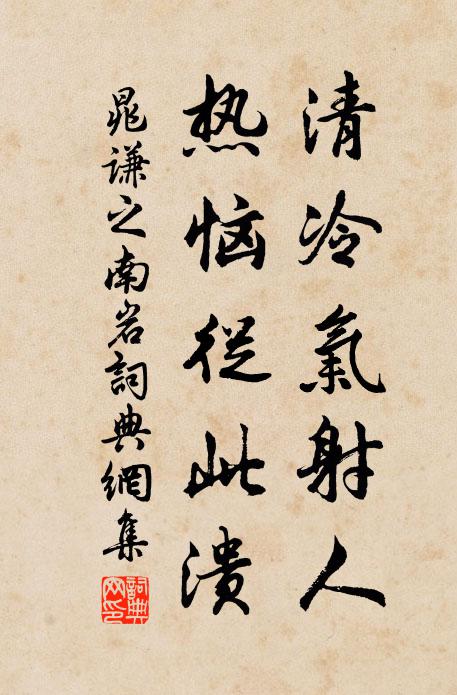 清冷氣射人
热恼從此溃
晁谦之南岩詞典網集
詞典
网印